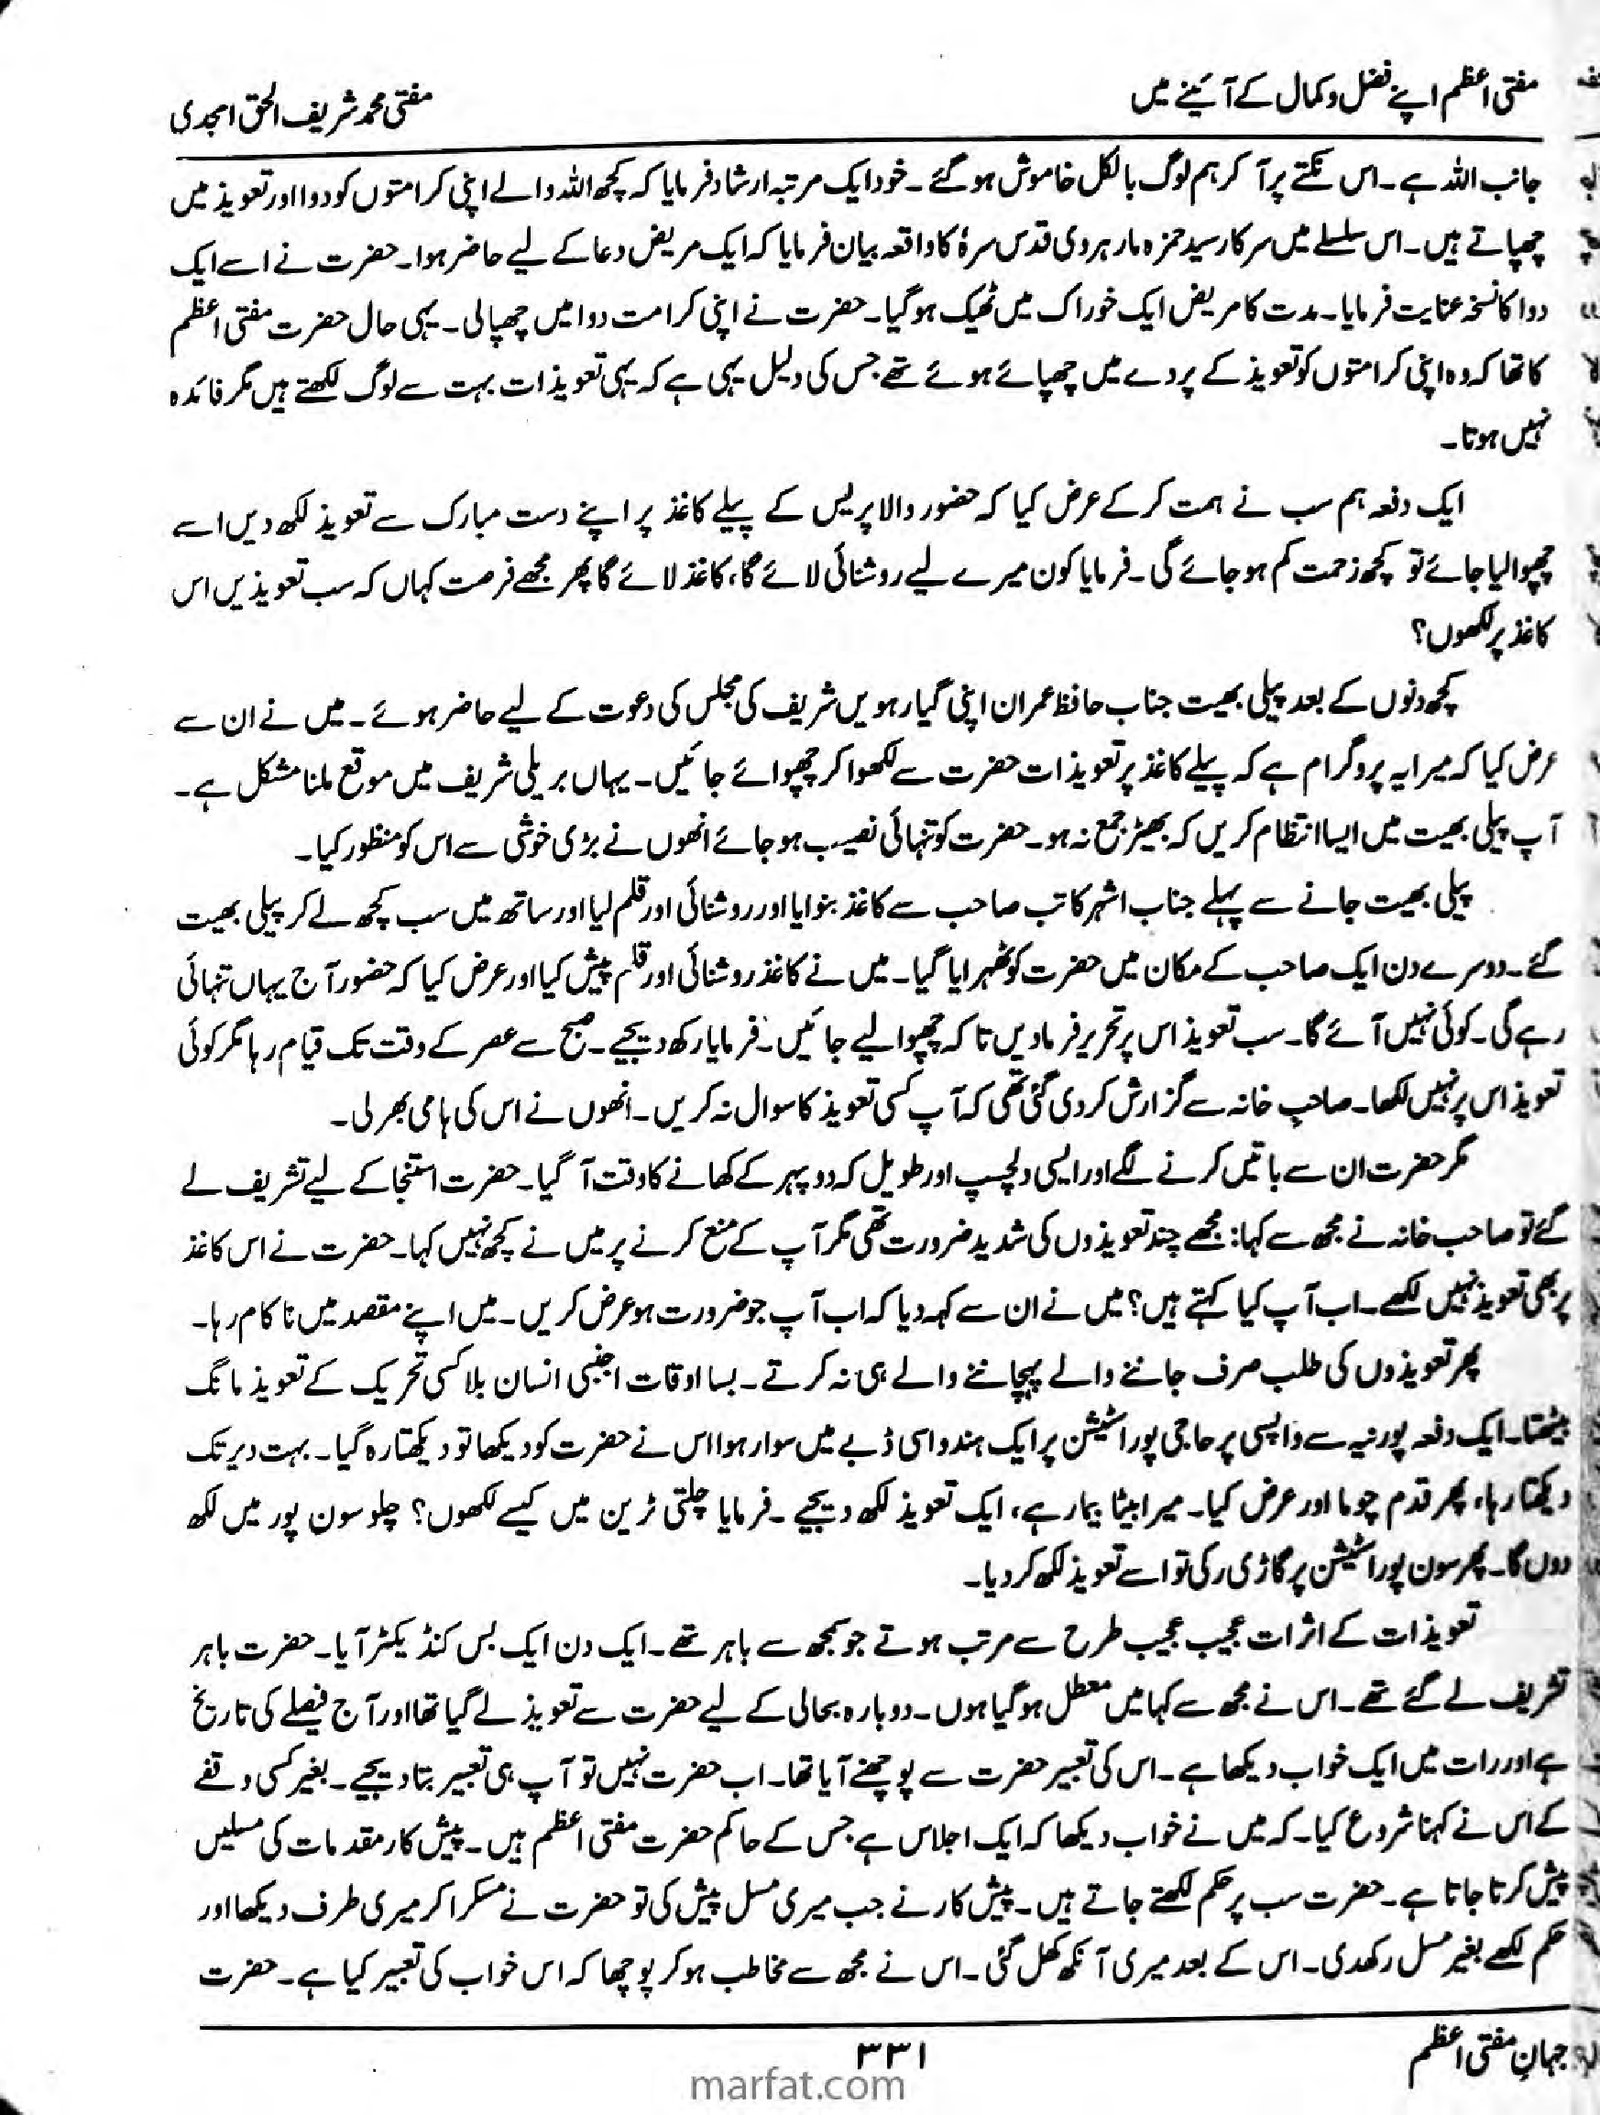 مفتی اعظم اپنے فضل و کمال کے آئینے میں
مفتی محمد شریف الحق امجدی
جانب اللہ ہے۔ اس نکتے پر آ کر ہم لوگ بالکل خاموش ہو گئے۔ خود ایک مرتبہ ارشاد فرمایا کہ کچھ اللہ والے اپنی کرامتوں کو دوا اور تعویذ میں
چھپاتے ہیں۔ اس سلسلے میں سرکار سید حمزہ مارہروی قدس سرہٗ کا واقعہ بیان فرمایا کہ ایک مریض دعا کے لیے حاضر ہوا۔ حضرت نے اسے ایک
دوا کا نسخہ عنایت فرمایا۔ مدت کا مریض ایک خوراک میں ٹھیک ہو گیا۔ حضرت نے اپنی کرامت دوا میں چھپالی۔ یہی حال حضرت مفتی اعظم
کا تھا کہ وہ اپنی کرامتوں کو تعویذ کے پردے میں چھپائے ہوئے تھے جس کی دلیل یہی ہے کہ یہی تعویذات بہت سے لوگ لکھتے ہیں مگر فائدہ
نہیں ہوتا۔
ایک دفعہ ہم سب نے ہمت کر کے عرض کیا کہ حضور والا پریس کے پیلے کاغذ پر اپنے دست مبارک سے تعویذ لکھ دیں اسے
چھپوا لیا جائے تو کچھ زحمت کم ہو جائے گی۔ فرمایا کون میرے لیے روشنائی لائے گا، کاغذ لائے گا پھر مجھے فرصت کہاں کہ سب تعویذیں اس
کاغذ پر لکھوں؟
کچھ دنوں کے بعد پیلی بھیت جناب حافظ عمران اپنی گیارہویں شریف کی مجلس کی دعوت کے لیے حاضر ہوئے۔ میں نے ان سے
عرض کیا کہ میرا یہ پروگرام ہے کہ پیلے کاغذ پر تعویذات حضرت سے لکھوا کر چھپوائے جائیں۔ یہاں بریلی شریف میں موقع ملنا مشکل ہے۔
آپ پیلی بھیت میں ایسا انتظام کریں کہ بھیڑ جمع نہ ہو۔ حضرت کو تنہائی نصیب ہو جائے انھوں نے بڑی خوشی سے اس کو منظور کیا۔
پیلی بھیت جانے سے پہلے جناب اشہر کاتب صاحب سے کاغذ بنوایا اور روشنائی اور قلم لیا اور ساتھ میں سب کچھ لے کر پیلی بھیت
گئے۔ دوسرے دن ایک صاحب کے مکان میں حضرت کو ٹھہرایا گیا۔ میں نے کاغذ روشنائی اور قلم پیش کیا اور عرض کیا کہ حضور آج یہاں تنہائی
رہے گی۔ کوئی نہیں آئے گا۔ سب تعویذ اس پر تحریر فرمادیں تا کہ چھپوا لیے جائیں۔ فرمایا رکھ دیجیے۔ صبح سے عصر کے وقت تک قیام رہا مگر کوئی
تعویذ اس پر نہیں لکھا۔ صاحبِ خانہ سے گزارش کر دی گئی تھی کہ آپ کسی تعویذ کا سوال نہ کریں۔ انھوں نے اس کی ہامی بھر لی۔
مگر حضرت ان سے باتیں کرنے لگے اور ایسی دلچسپ اور طویل کہ دوپہر کے کھانے کا وقت آ گیا۔ حضرت استنجا کے لیے تشریف لے
گئے تو صاحب خانہ نے مجھ سے کہا: مجھے چند تعویذوں کی شدید ضرورت تھی مگر آپ کے منع کرنے پر میں نے کچھ نہیں کہا۔ حضرت نے اس کاغذ
پر بھی تعویذ نہیں لکھے۔ اب آپ کیا کہتے ہیں؟ میں نے ان سے کہہ دیا کہ اب آپ جو ضرورت ہو عرض کریں۔ میں اپنے مقصد میں ناکام رہا۔
پھر تعویذوں کی طلب صرف جاننے والے پہچاننے والے ہی نہ کرتے۔ بسا اوقات اجنبی انسان بلا کسی تحریک کے تعویذ مانگ
بیٹھتا۔ ایک دفعہ پورنیہ سے واپسی پر حاجی پور اسٹیشن پر ایک ہندو اسی ڈبے میں سوار ہوا اس نے حضرت کو دیکھا تو دیکھتا رہ گیا۔ بہت دیر تک
دیکھتا رہا، پھر قدم چوما اور عرض کیا۔ میرا بیٹا بیمار ہے، ایک تعویذ لکھ دیجیے۔ فرمایا چلتی ٹرین میں کیسے لکھوں؟ چلو سون پور میں لکھ
دوں گا۔ پھر سون پور اسٹیشن پر گاڑی رکی تو اسے تعویذ لکھ کر دیا۔
تعویذات کے اثرات عجیب عجیب طرح سے مرتب ہوتے جو سمجھ سے باہر تھے۔ ایک دن ایک بس کنڈیکٹر آیا۔ حضرت باہر
تشریف لے گئے تھے۔ اس نے مجھ سے کہا میں معطل ہو گیا ہوں۔ دوبارہ بحالی کے لیے حضرت سے تعویذ لے گیا تھا اور آج فیصلے کی تاریخ
ہے اور رات میں ایک خواب دیکھا ہے۔ اس کی تعبیر حضرت سے پوچھنے آیا تھا۔ اب حضرت نہیں تو آپ ہی تعبیر بتا دیجیے۔ بغیر کسی وقفے
کے اس نے کہنا شروع کیا۔ کہ میں نے خواب دیکھا کہ ایک اجلاس ہے جس کے حاکم حضرت مفتی اعظم ہیں۔ پیش کار مقدمات کی مسلیں
پیش کرتا جاتا ہے۔ حضرت سب پر حکم لکھتے جاتے ہیں۔ پیش کار نے جب میری مسل پیش کی تو حضرت نے مسکرا کر میری طرف دیکھا اور
حکم لکھے بغیر مسل رکھدی۔ اس کے بعد میری آنکھ کھل گئی۔ اس نے مجھ سے مخاطب ہو کر پوچھا کہ اس خواب کی تعبیر کیا ہے۔ حضرت
جہانِ مفتی اعظم
۳۳۱
marfat.com